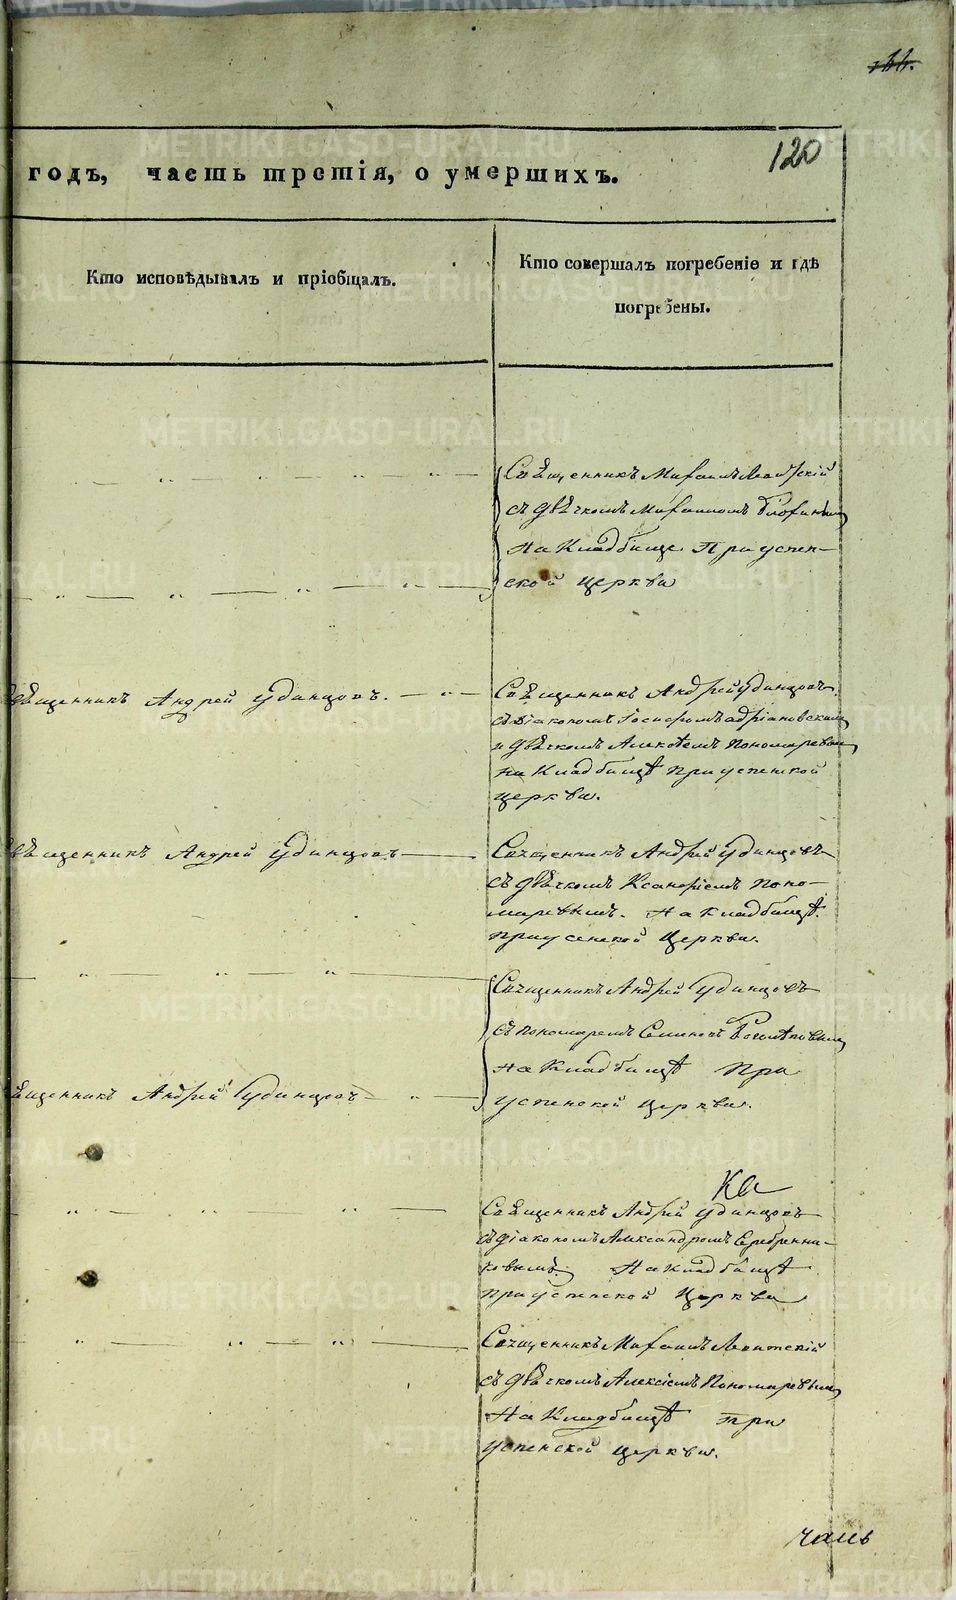 120
годъ, часть третія, о умершихъ.
Кто исповѣдывалъ и пріобщалъ.
Кто совершалъ погребеніе и гдѣ
погребены.
Священникъ Михаилъ
съ дьячкомъ Михаиломъ
На Кладбище При успен-
ской церкви
Священникъ Андрей Удинцовъ.
Священникъ Андрей Удинцовъ
съ діакономъ
и дьячкомъ Алексѣемъ Пономаревым
на Кладбищѣ при успенской
церкви.
Священникъ Андрей Удинцовъ
Священникъ Андрей Удинцовъ
съ дьячкомъ Поно-
маревымъ. На кладбищѣ
при успенской Церкви.
Священникъ Андрей Удинцовъ
съ пономаремъ
на Кладбищѣ При
Священникъ Андрей Удинцовъ
успенской церкви.
Священникъ Андрей Удинцовъ
съ діакономъ Александромъ Серебренни-
ковымъ. На Кладбищѣ
при успенской Церкви
Священникъ Михаилъ
съ дьячкомъ Алексіемъ Пономаревым
На Кладбищѣ при
успенской церкви.
METRIKI.GASO-URAL.RU